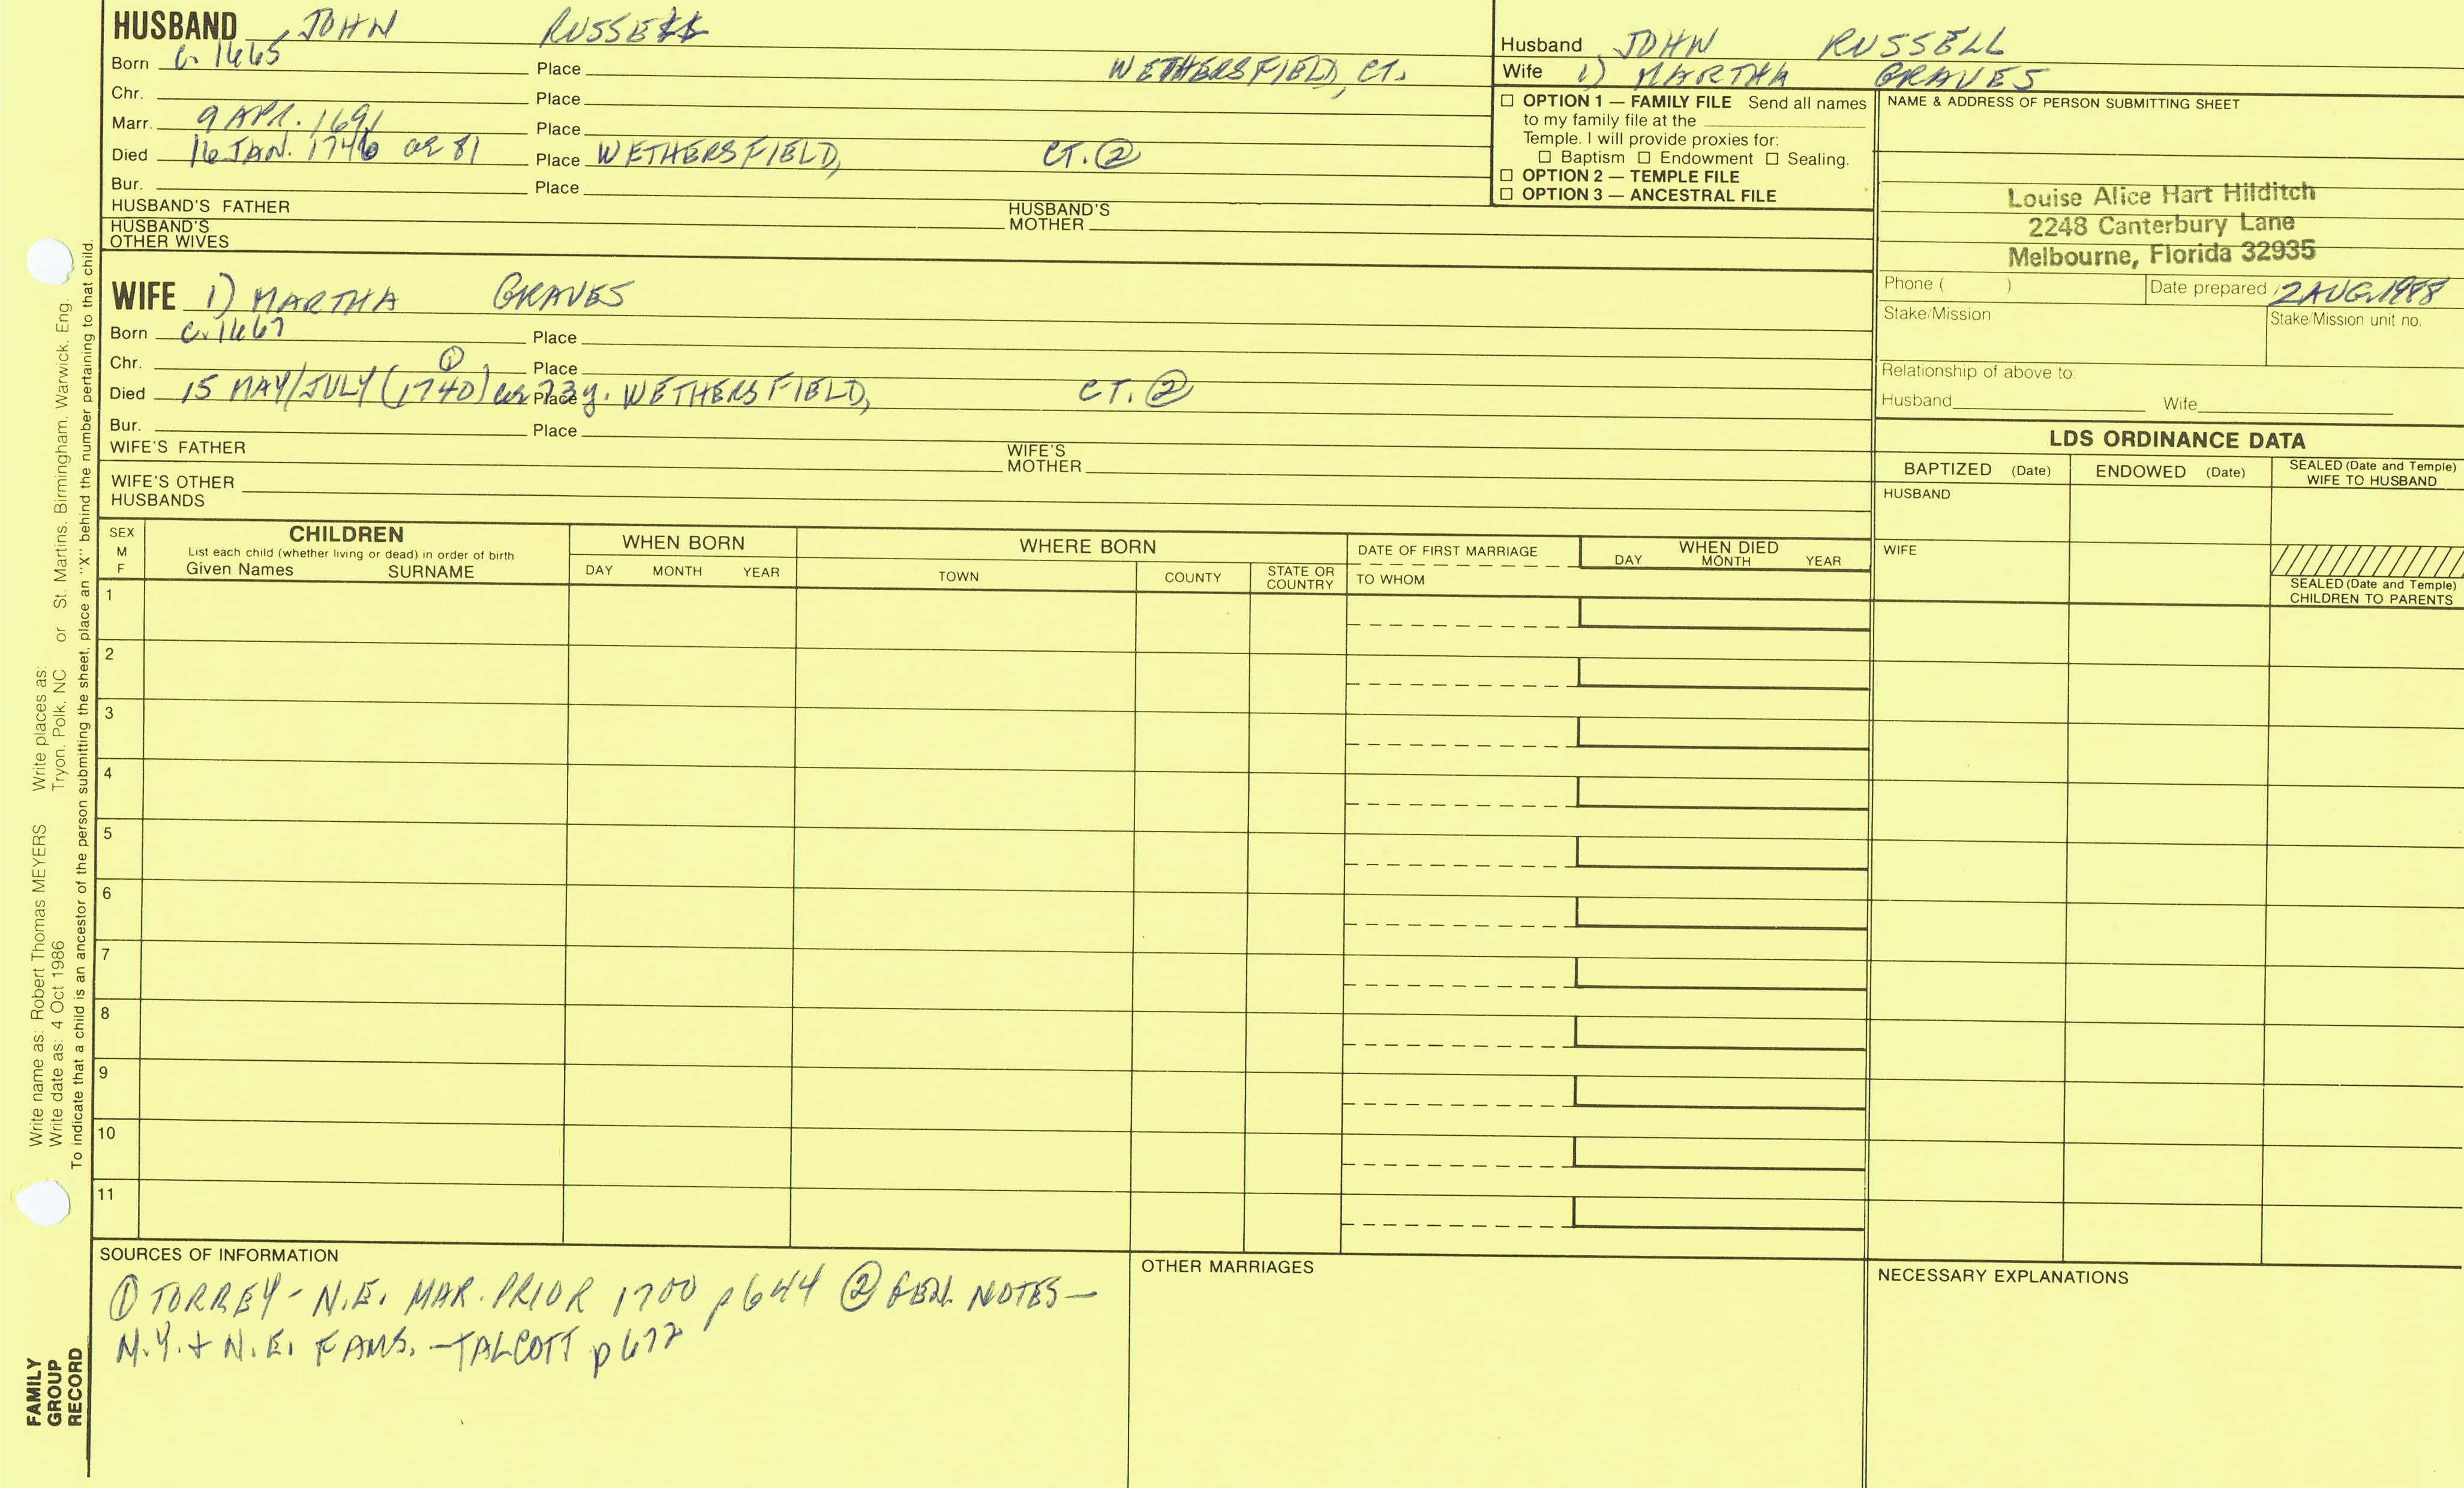 HUSBAND JOHN RUSSELL
Born c. 1665 Place WETHERSFIELD, CT.
Chr. Place
Marr. 9 APR. 1691 Place
Died 16 JAN. 1746 ae 81 Place WETHERSFIELD, CT. ②
Bur. Place
HUSBAND'S FATHER HUSBAND'S MOTHER
HUSBAND'S OTHER WIVES
Husband JOHN RUSSELL
Wife 1) MARTHA GRAVES
☐ OPTION 1 — FAMILY FILE Send all names
to my family file at the
Temple. I will provide proxies for:
☐ Baptism ☐ Endowment ☐ Sealing.
☐ OPTION 2 — TEMPLE FILE
☐ OPTION 3 — ANCESTRAL FILE
NAME & ADDRESS OF PERSON SUBMITTING SHEET
Louise Alice Hart Hilditch
2248 Canterbury Lane
Melbourne, Florida 32935
Phone ( ) Date prepared 2 AUG. 1988
Stake/Mission Stake/Mission unit no.
Relationship of above to:
Husband Wife
WIFE 1) MARTHA GRAVES
Born c. 1667 Place
Chr. ① Place
Died 15 MAY/JULY (1740) ae 73 y. Place WETHERSFIELD, CT. ②
Bur. Place
WIFE'S FATHER WIFE'S MOTHER
WIFE'S OTHER HUSBANDS
LDS ORDINANCE DATA
BAPTIZED (Date) ENDOWED (Date) SEALED (Date and Temple) WIFE TO HUSBAND
HUSBAND
WIFE
SEALED (Date and Temple) CHILDREN TO PARENTS
SEX M F
CHILDREN
List each child (whether living or dead) in order of birth
Given Names SURNAME
WHEN BORN
DAY MONTH YEAR
WHERE BORN
TOWN COUNTY STATE OR COUNTRY
DATE OF FIRST MARRIAGE
TO WHOM
WHEN DIED
DAY MONTH YEAR
1
2
3
4
5
6
7
8
9
10
11
SOURCES OF INFORMATION
① TORREY - N.E. MAR. PRIOR 1700 p 644 ② GEN. NOTES —
N.Y. + N.E. FAMS. — TALCOTT p 677
OTHER MARRIAGES
NECESSARY EXPLANATIONS
Write name as: Robert Thomas MEYERS Write places as:
Write date as: 4 Oct 1986 Tryon, Polk, NC or St. Martins, Birmingham, Warwick, Eng.
To indicate that a child is an ancestor of the person submitting the sheet, place an "X" behind the number pertaining to that child.
FAMILY
GROUP
RECORD